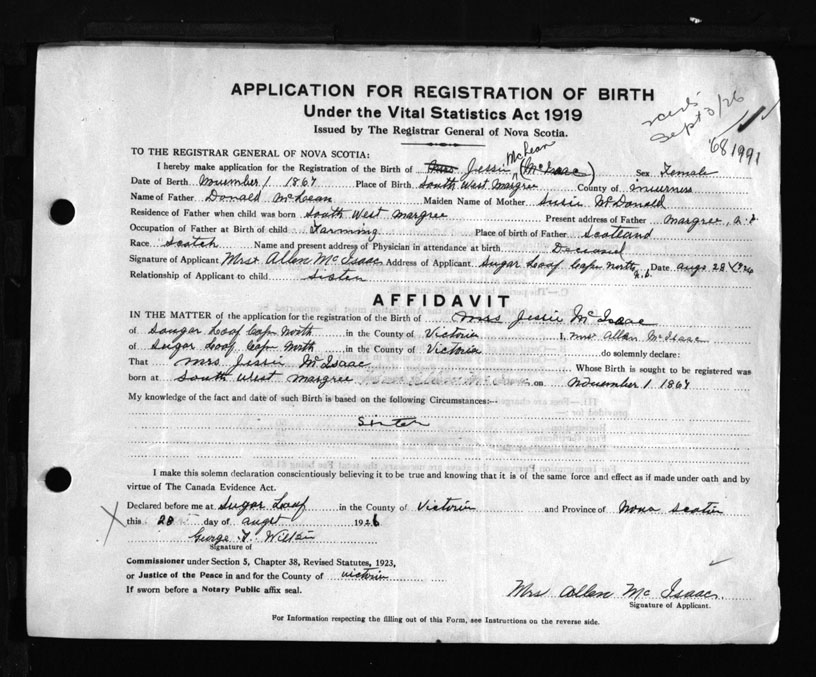 APPLICATION FOR REGISTRATION OF BIRTH
Under the Vital Statistics Act 1919
Issued by The Registrar General of Nova Scotia.
Sept 3/26
'68 1991
TO THE REGISTRAR GENERAL OF NOVA SCOTIA:
McLean
I hereby make application for the Registration of the Birth of Mrs Jessie (McIsaac) Sex Female
Date of Birth November 1 1867 Place of Birth South West Margree County of inverness
Name of Father Donald McLean Maiden Name of Mother Susie McDonald
Residence of Father when child was born South West Margree Present address of Father Margree,
Occupation of Father at Birth of child Farming Place of birth of Father Scotland
Race Scotch Name and present address of Physician in attendance at birth Deceased
Signature of Applicant Mrs Allen McIsaac Address of Applicant Sugar Loaf Cape North, Date augs 28
Relationship of Applicant to child Sister
AFFIDAVIT
IN THE MATTER of the application for the registration of the Birth of Mrs Jessie McIsaac
of Sougar Loof Cap North in the County of Victoria I, Mrs Allan McIsaac
of Sugar Loof Cap North in the County of Victoria do solemnly declare:
That Mrs Jessie McIsaac Whose Birth is sought to be registered was
born at South West Margree on November 1 1867
My knowledge of the fact and date of such Birth is based on the following Circumstances:--
Sister
I make this solemn declaration conscientiously believing it to be true and knowing that it is of the same force and effect as if made under oath and by
virtue of The Canada Evidence Act.
Declared before me at Sugar Loaf in the County of Victoria and Province of Nova Scotia
this 28 day of august 1926
George
Signature of
Commissioner under Section 5, Chapter 38, Revised Statutes, 1923,
or Justice of the Peace in and for the County of victoria
If sworn before a Notary Public affix seal.
Mrs Allen McIsaac
Signature of Applicant.
For Information respecting the filling out of this Form, see Instructions on the reverse side.